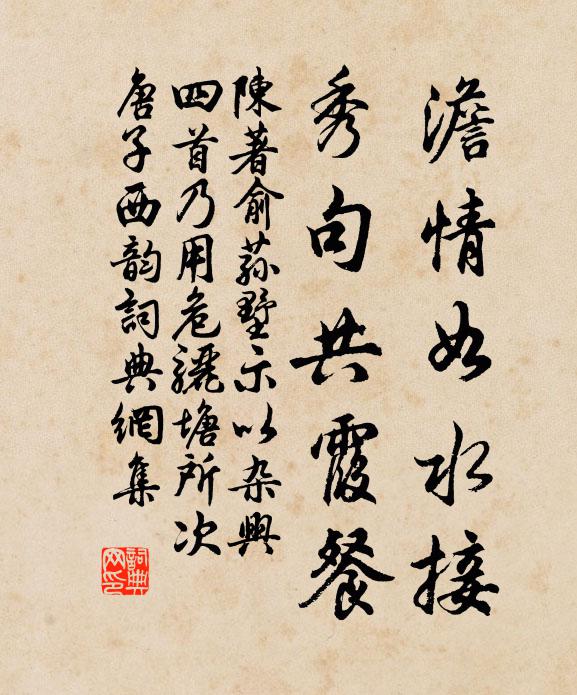 澹情如水接
秀句共霞餐
陳著俞蓀墅示以杂興
四首乃用危驪塘所次
唐子西韵詞典網集
詞典网印